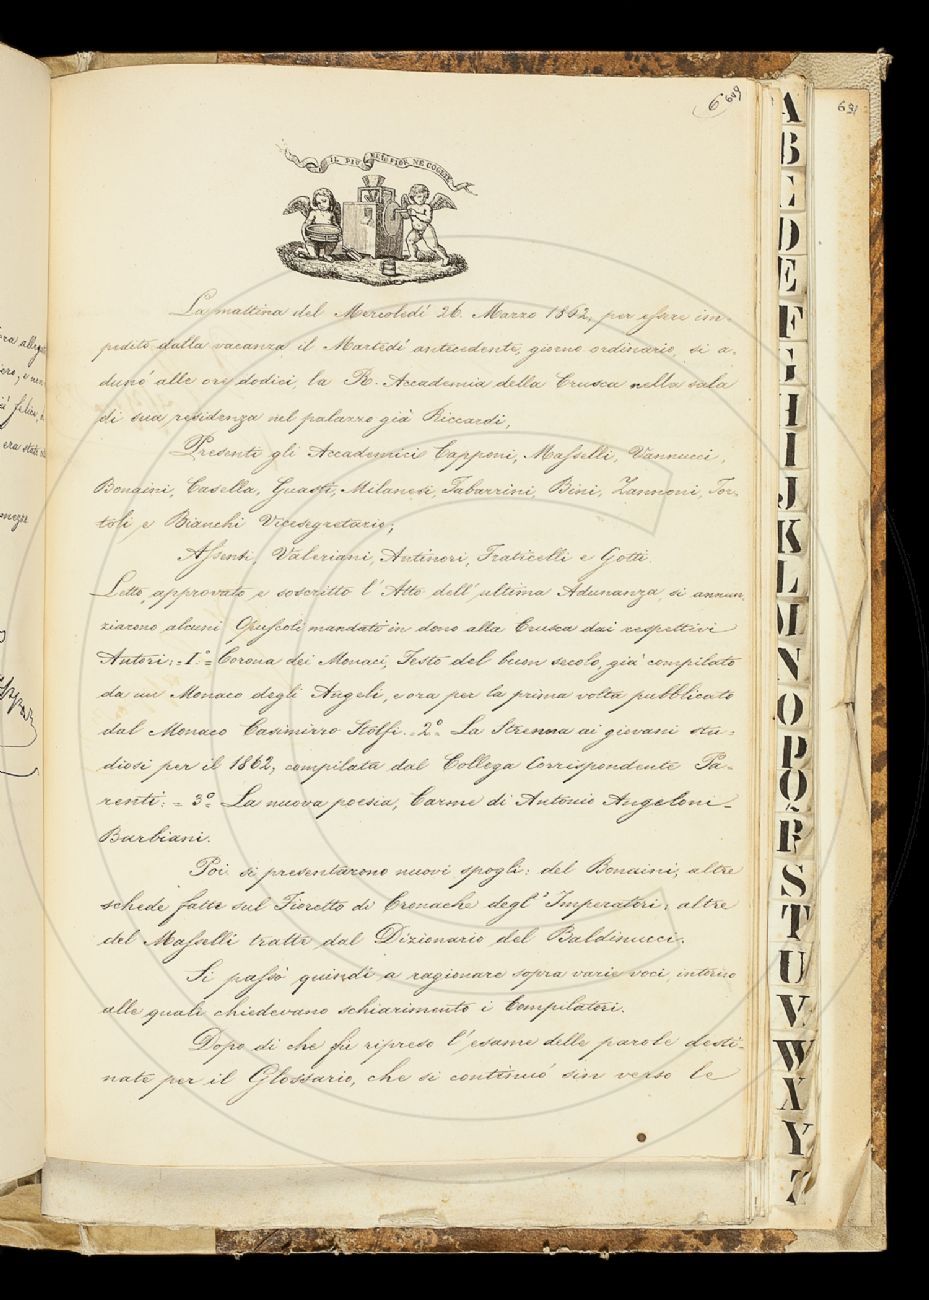 6 649
IL PIÙ BEL FIOR NE COGLIE
La mattina del Mercoledí 26. Marzo 1862, per essere im-
pedito dalla vacanza il Martedí antecedente, giorno ordinario, si a-
dunò alle ore dodici, la R. Accademia della Crusca nella sala
di sua residenza nel palazzo già Riccardi,
Presenti gli Accademici Capponi, Masselli, Vannucci,
Bonaini, Casella, Guasti, Milanesi, Tabarrini, Bini, Zannoni, Tor-
toli e Bianchi Vicesegretario;
Assenti, Valeriani, Antinori, Fraticelli e Gotti.
Letto, approvato e soscritto l'Atto dell'ultima Adunanza, si annun-
ziarono alcuni Opuscoli mandati in dono alla Crusca dai respettivi
Autori: = I.º = Corona dei Monaci, Testo del buon secolo, già compilato
da un Monaco degli Angeli, e ora per la prima volta pubblicato
dal Monaco Casimirro Stolfi. = 2º = La Strenna ai giovani stu-
diosi per il 1862, compilata dal Collega Corrispondente Pa-
renti: = 3º = La nuova poesia, Carme di Antonio Angeloni-
Barbiani.
Poi si presentarono nuovi spogli: del Bonaini, altre
schede fatte sul Fioretto di Cronache degl'Imperatori: altre
del Masselli tratte dal Dizionario del Baldinucci.
Si passò quindi a ragionare sopra varie voci, intorno
alle quali chiedevano schiarimento i Compilatori.
Dopo di che fu ripreso l'esame delle parole desti-
nate per il Glossario, che si continuò sin verso le
A
B
C
D
E
F
G
H
I
J
K
L
M
N
O
P
Q
R
S
T
U
V
W
X
Y
Z
era state